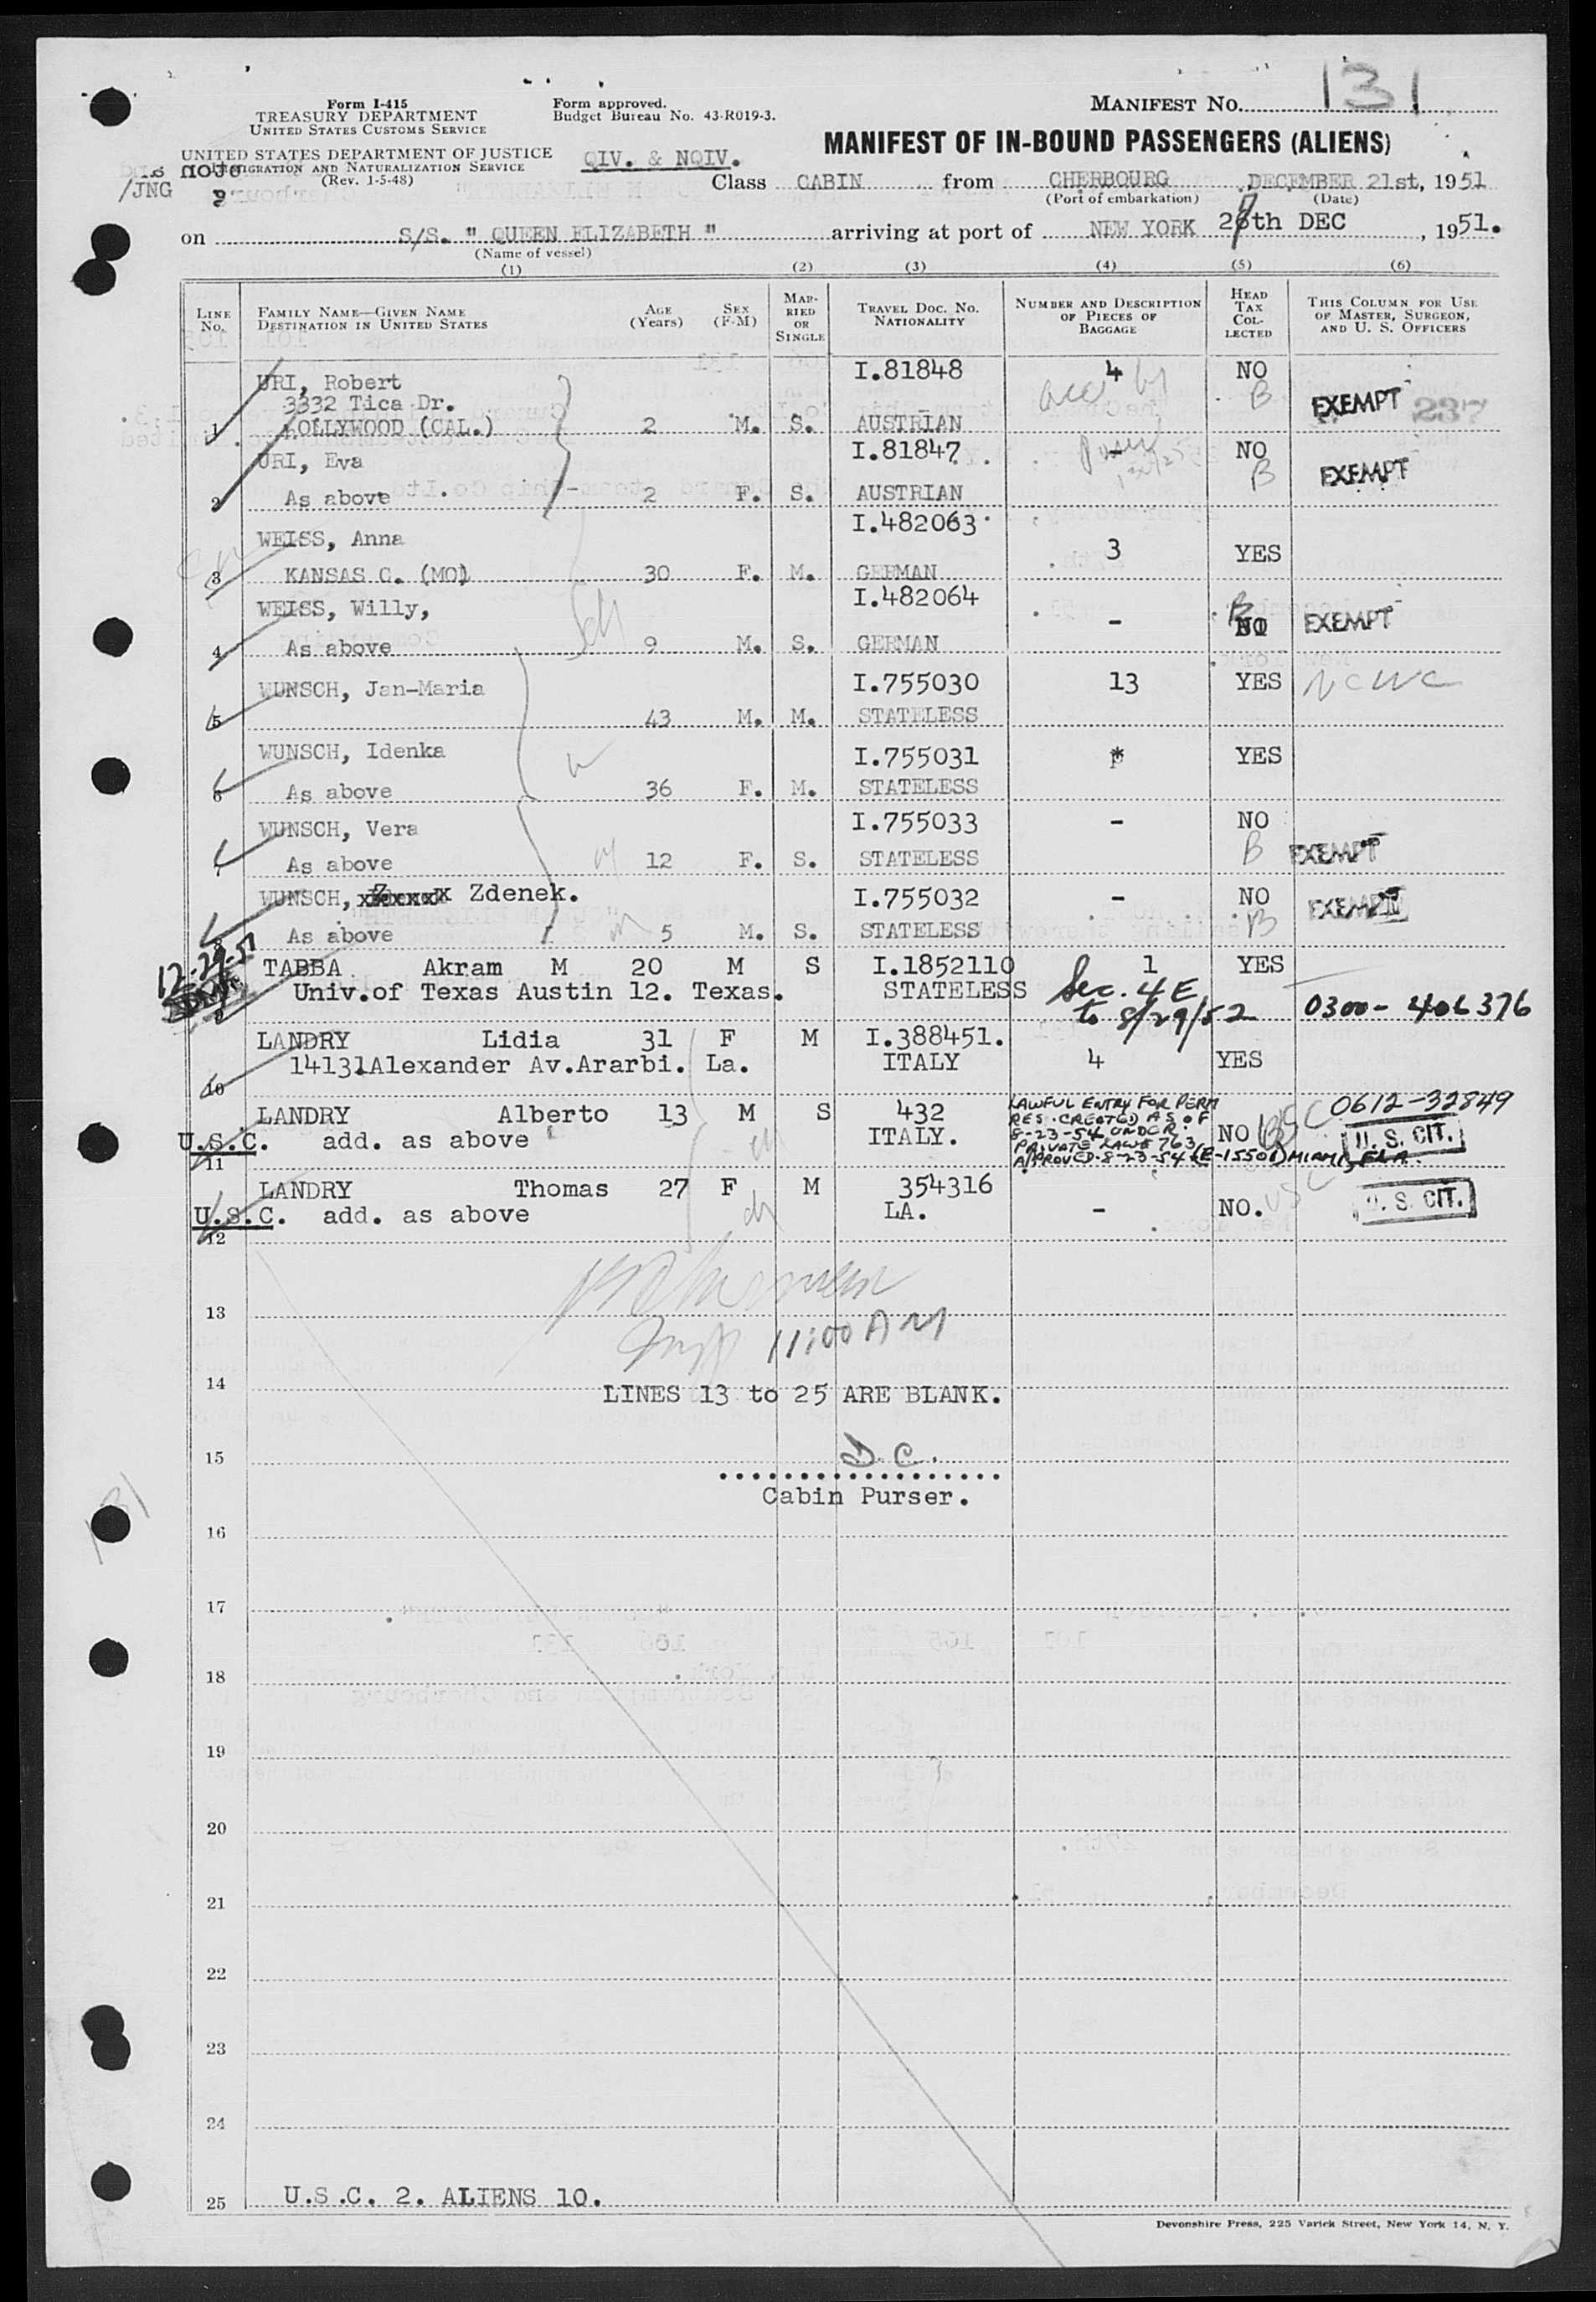 Form I-415
TREASURY DEPARTMENT
UNITED STATES CUSTOMS SERVICE
UNITED STATES DEPARTMENT OF JUSTICE
IMMIGRATION AND NATURALIZATION SERVICE
(Rev. 1-5-48)
/JNG
Form approved.
Budget Bureau No. 43-R019-3.
QIV. & NQIV.
MANIFEST NO. 131
MANIFEST OF IN-BOUND PASSENGERS (ALIENS)
Class CABIN from CHERBOURG, DECEMBER 21st, 1951
(Port of embarkation) (Date)
on S/S. " QUEEN ELIZABETH " arriving at port of NEW YORK th DEC, 1951.
(Name of vessel)
(1) (2) (3) (4) (5) (6)
LINE NO. FAMILY NAME—GIVEN NAME DESTINATION IN UNITED STATES AGE (Years) SEX (F-M) MARRIED OR SINGLE TRAVEL DOC. NO. NATIONALITY NUMBER AND DESCRIPTION OF PIECES OF BAGGAGE HEAD TAX COLLECTED THIS COLUMN FOR USE OF MASTER, SURGEON, AND U. S. OFFICERS
URI, Robert I.81848 4 NO
3332 Tica Dr. B EXEMPT 237
1 HOLLYWOOD (CAL.) 2 M. S. AUSTRIAN
URI, Eva I.81847 - NO
2 As above 2 F. S. AUSTRIAN B EXEMPT
WEISS, Anna I.482063 3 YES
3 KANSAS C. (MO) 30 F. M. GERMAN
WEISS, Willy, I.482064 - B NO EXEMPT
4 As above 9 M. S. GERMAN
WUNSCH, Jan-Maria I.755030 13 YES NCWC
5 43 M. M. STATELESS
WUNSCH, Idenka I.755031 * YES
6 As above 36 F. M. STATELESS
WUNSCH, Vera I.755033 - NO
7 As above 12 F. S. STATELESS B EXEMPT
WUNSCH, Zdenek. I.755032 - NO EXEMPT
8 As above 5 M. S. STATELESS B
12-29-51
TABBA Akram M 20 M S I.1852110 1 YES
9 Univ.of Texas Austin 12. Texas. STATELESS Sec. 4E
to 8/29/52 0300-406376
LANDRY Lidia 31 F M I.388451.
10 14131Alexander Av.Ararbi. La. ITALY 4 YES
LANDRY Alberto 13 M S 432 0612-32849
U.S.C. add. as above ITALY. NO B USC U. S. CIT.
11
LAWFUL ENTRY FOR PERM
RES. CREATED AS OF
8-23-54 UNDER
PRIVATE LAW # 763,
APPROVED-8-23-54 (E-15501) MIAMI, FLA.
LANDRY Thomas 27 F M 354316
U.S.C. add. as above LA. - NO. USC U. S. CIT.
12
13
11:00 AM
14 LINES 13 to 25 ARE BLANK.
15 D.C.
Cabin Purser.
16
17
18
19
20
21
22
23
24
25 U.S.C. 2. ALIENS 10.
131
Devonshire Press, 225 Varick Street, New York 14, N. Y.